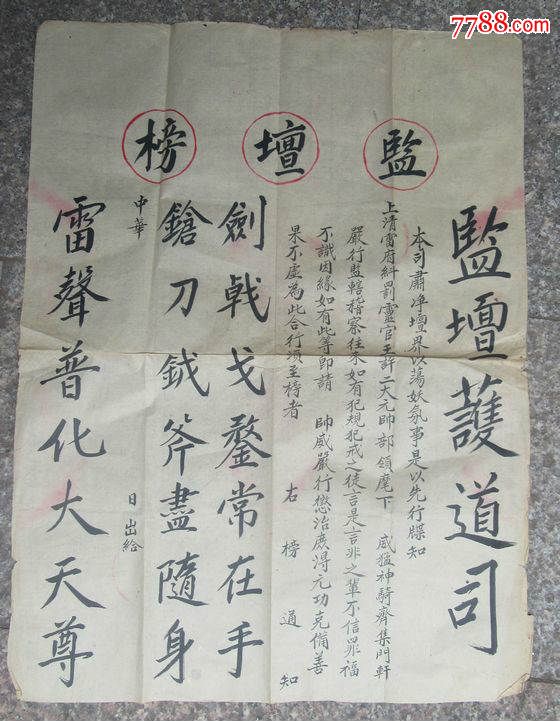 7788.com
監壇榜
監壇護道司
本司肅凈壇界以蕩妖氛事是以先行牒知
上清雷府糾罰靈官王許二大元帥部領麾下 威猛神騎齊集門軒
嚴行監轄稽察往來如有犯規犯戒之徒言是言非之輩不信罪福
不識因緣如有此等即請 帥威嚴行懲治庶得元功克備善
果不虛為此合行須至榜者
右榜通知
劍戟戈鍪常在手
鎗刀鉞斧盡隨身
中華 日出給
雷聲普化大天尊